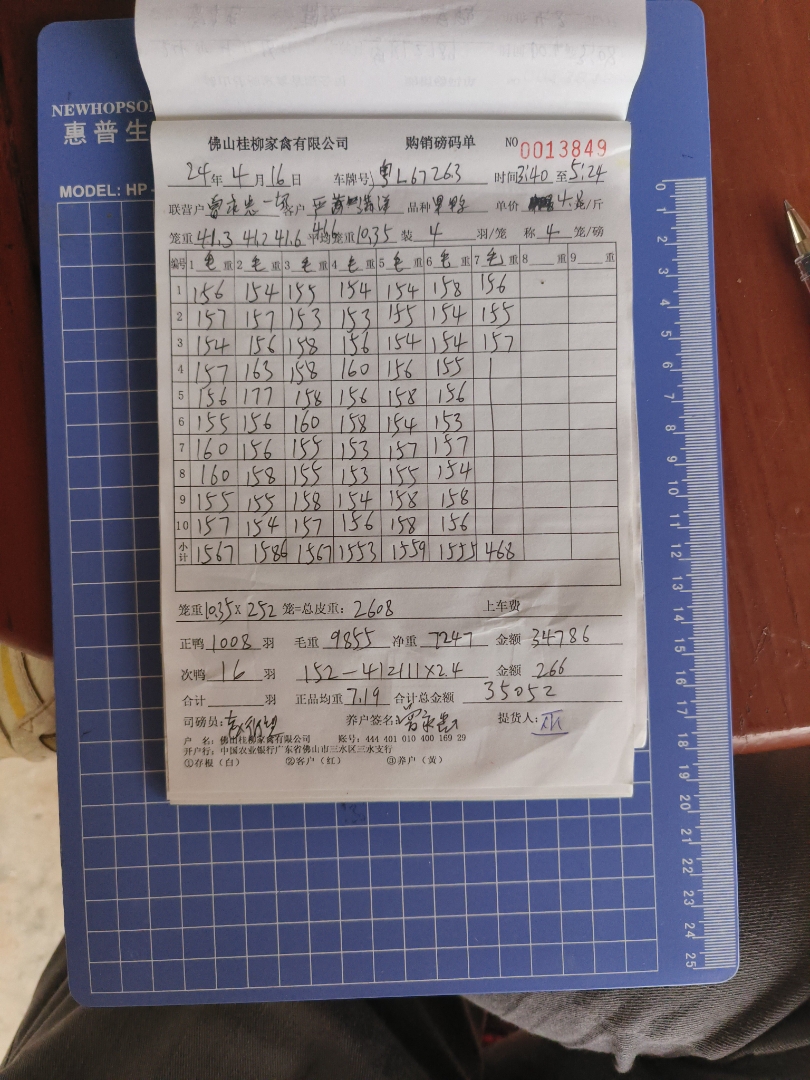 NEWHOPSON
惠普生
MODEL: HP-
佛山桂柳家禽有限公司 购销磅码单 NO 0013849
24年 4月 16日 车牌号 粤L67263 时间 3:40 至 5:24
联营户 客户 品种 单价 元/斤
笼重 41.3 41.2 41.6 41.6 平均笼重 10.35 装 4 羽/笼 称 4 笼/磅
编号 1 毛 重 2 毛 重 3 毛 重 4 毛 重 5 毛 重 6 毛 重 7 毛 重 8 重 9 重
1 156 154 155 154 154 158 156
2 157 157 153 153 155 154 155
3 154 156 158 156 154 154 157
4 157 163 158 160 156 155
5 156 177 158 156 158 156
6 155 156 160 158 154 153
7 160 156 155 153 157 157
8 160 158 155 153 155 154
9 155 155 158 154 158 158
10 157 154 157 156 158 156
小计 1567 1586 1567 1553 1559 1555 468
笼重 10.35 × 252 笼=总皮重: 2608 上车费
正鸭 1008 羽 毛重 9855 净重 7247 金额 34786
次鸭 16 羽 152-41=111×2.4 金额 266
合计 羽 正品均重 7.19 合计总金额 35052
司磅员: 养户签名: 提货人:
户 名: 佛山桂柳家禽有限公司 账号: 444 401 010 400 169 29
开户行: 中国农业银行广东省佛山市三水区三水支行
①存根(白) ②客户(红) ③养户(黄)
0 1 2 3 4 5 6 7 8 9 10 11 12 13 14 15 16 17 18 19 20 21 22 23 24 25